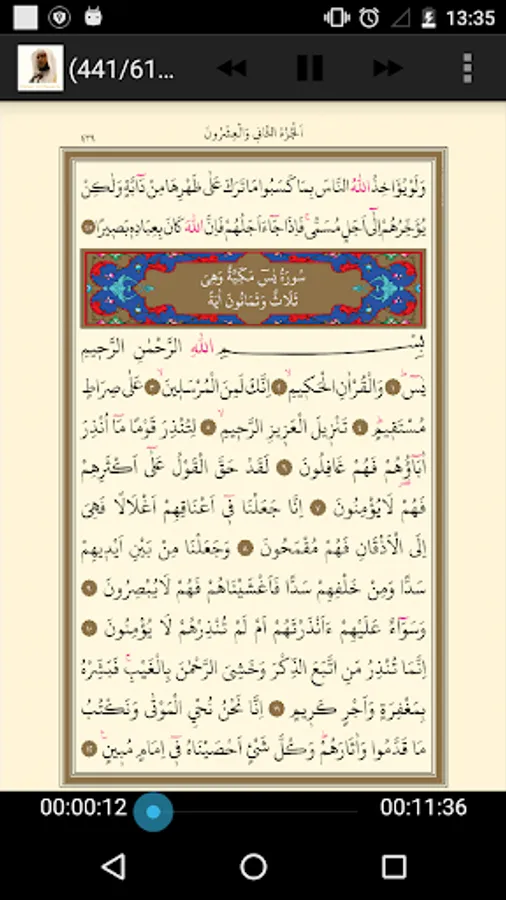 13:35
(441/61...
اَلْجُزْءُ الثَّانِي وَالْعِشْرُونَ
٤٣٩
وَلَوْ يُؤَاخِذُ اللّٰهُ النَّاسَ بِمَا كَسَبُوا مَا تَرَكَ عَلٰى ظَهْرِهَا مِنْ دَٓابَّةٍ وَلٰكِنْ
يُؤَخِّرُهُمْ اِلٰٓى اَجَلٍ مُسَمًّىۚ فَاِذَا جَٓاءَ اَجَلُهُمْ فَاِنَّ اللّٰهَ كَانَ بِعِبَادِه۪ بَص۪يرًا ٤٥
سُورَةُ يٰسٓ مَكِّيَّةٌ وَهِيَ
ثَلَاثٌ وَثَمَانُونَ اٰيَةً
بِسْمِ اللّٰهِ الرَّحْمٰنِ الرَّح۪يمِ
يٰسٓۜ ١ وَالْقُرْاٰنِ الْحَك۪يمِۙ ٢ اِنَّكَ لَمِنَ الْمُرْسَل۪ينَۙ ٣ عَلٰى صِرَاطٍ
مُسْتَق۪يمٍۜ ٤ تَنْز۪يلَ الْعَز۪يزِ الرَّح۪يمِۙ ٥ لِتُنْذِرَ قَوْمًا مَٓا اُنْذِرَ
اٰبَٓاؤُ۬هُمْ فَهُمْ غَافِلُونَ ٦ لَقَدْ حَقَّ الْقَوْلُ عَلٰٓى اَكْثَرِهِمْ
فَهُمْ لَا يُؤْمِنُونَ ٧ اِنَّا جَعَلْنَا ف۪ٓي اَعْنَاقِهِمْ اَغْلَالًا فَهِيَ
اِلَى الْاَذْقَانِ فَهُمْ مُقْمَحُونَ ٨ وَجَعَلْنَا مِنْ بَيْنِ اَيْد۪يهِمْ
سَدًّا وَمِنْ خَلْفِهِمْ سَدًّا فَاَغْشَيْنَاهُمْ فَهُمْ لَا يُبْصِرُونَ ٩
وَسَوَٓاءٌ عَلَيْهِمْ ءَاَنْذَرْتَهُمْ اَمْ لَمْ تُنْذِرْهُمْ لَا يُؤْمِنُونَ ١٠
اِنَّمَا تُنْذِرُ مَنِ اتَّبَعَ الذِّكْرَ وَخَشِيَ الرَّحْمٰنَ بِالْغَيْبِۚ فَبَشِّرْهُ
بِمَغْفِرَةٍ وَاَجْرٍ كَر۪يمٍ ١١ اِنَّا نَحْنُ نُحْيِ الْمَوْتٰى وَنَكْتُبُ
مَا قَدَّمُوا وَاٰثَارَهُمْۜ وَكُلَّ شَيْءٍ اَحْصَيْنَاهُ ف۪ٓي اِمَامٍ مُب۪ينٍ۟ ١٢
00:00:12
00:11:36